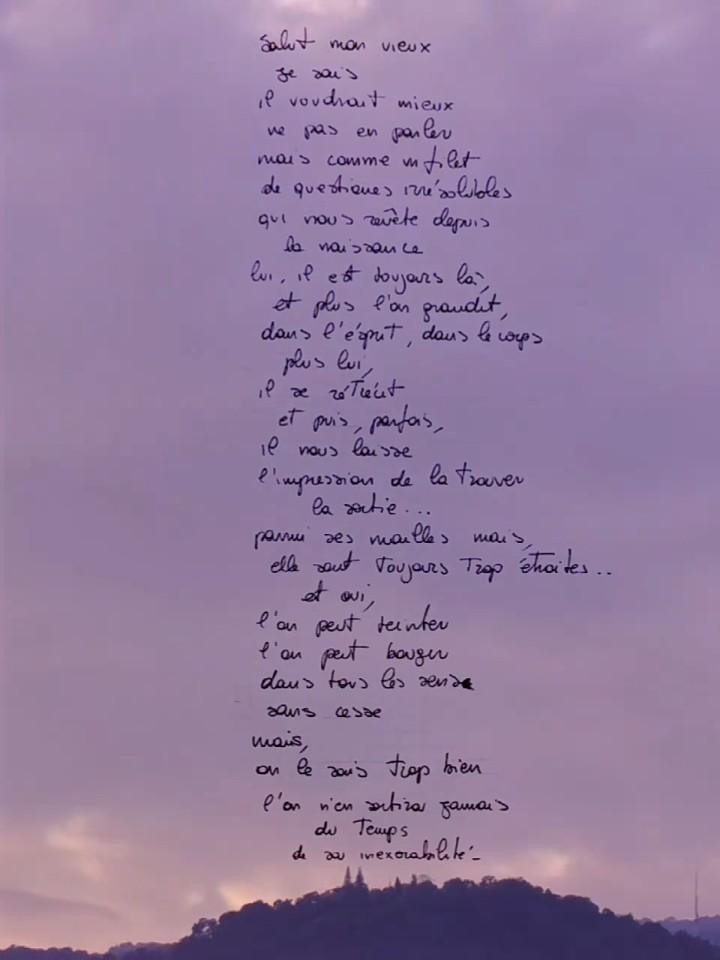 Salut mon vieux
je sais
il voudrait mieux
ne pas en parler
mais comme un filet
de questiones irrésolubles
qui nous revête depuis
la naissance
lui, il est toujours là,
et plus l'on grandit,
dans l'ésprit, dans le corps
plus lui,
il se rétrécit
et puis, parfois,
il nous laisse
l'impression de la trouver
la sortie...
parmi ses mailles mais,
elle sont toujours trop étroites..
et oui,
l'on peut
l'on peut bouger
dans tous les sens
sans cesse
mais,
on le sais trop bien
l'on n'en sortira jamais
du Temps
de sa inexorabilité-